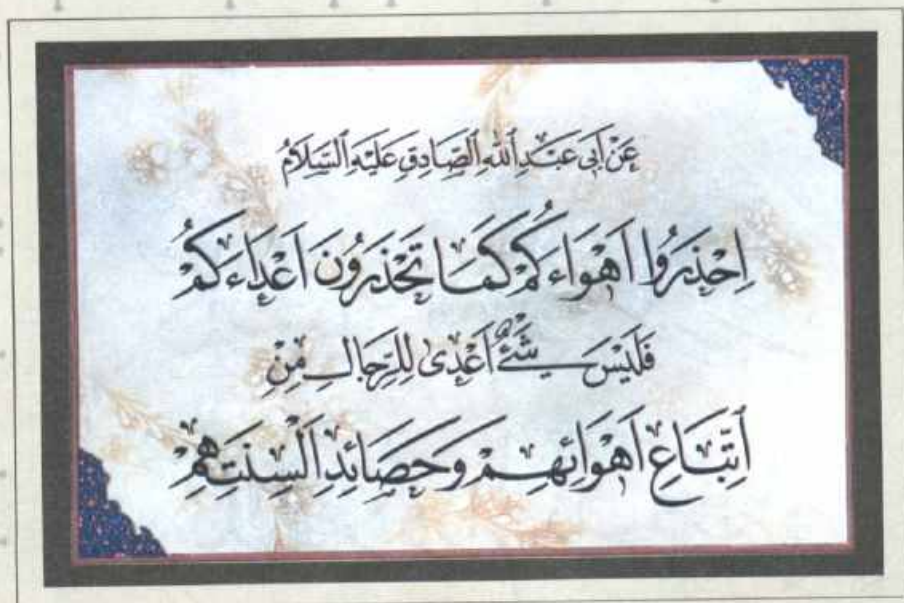 عَنْ أَبِي عَبْدِ ٱللّٰهِ ٱلصَّادِقِ عَلَيْهِ ٱلسَّلَامُ
اِحْذَرُوا اَهْوَاءَكُمْ كَمَا تَحْذَرُونَ اَعْدَاءَكُمْ
فَلَيْسَ شَيْءٌ اَعْدَى لِلرِّجَالِ مِنْ
اِتِّبَاعِ اَهْوَائِهِمْ وَحَصَائِدِ اَلْسِنَتِهِمْ